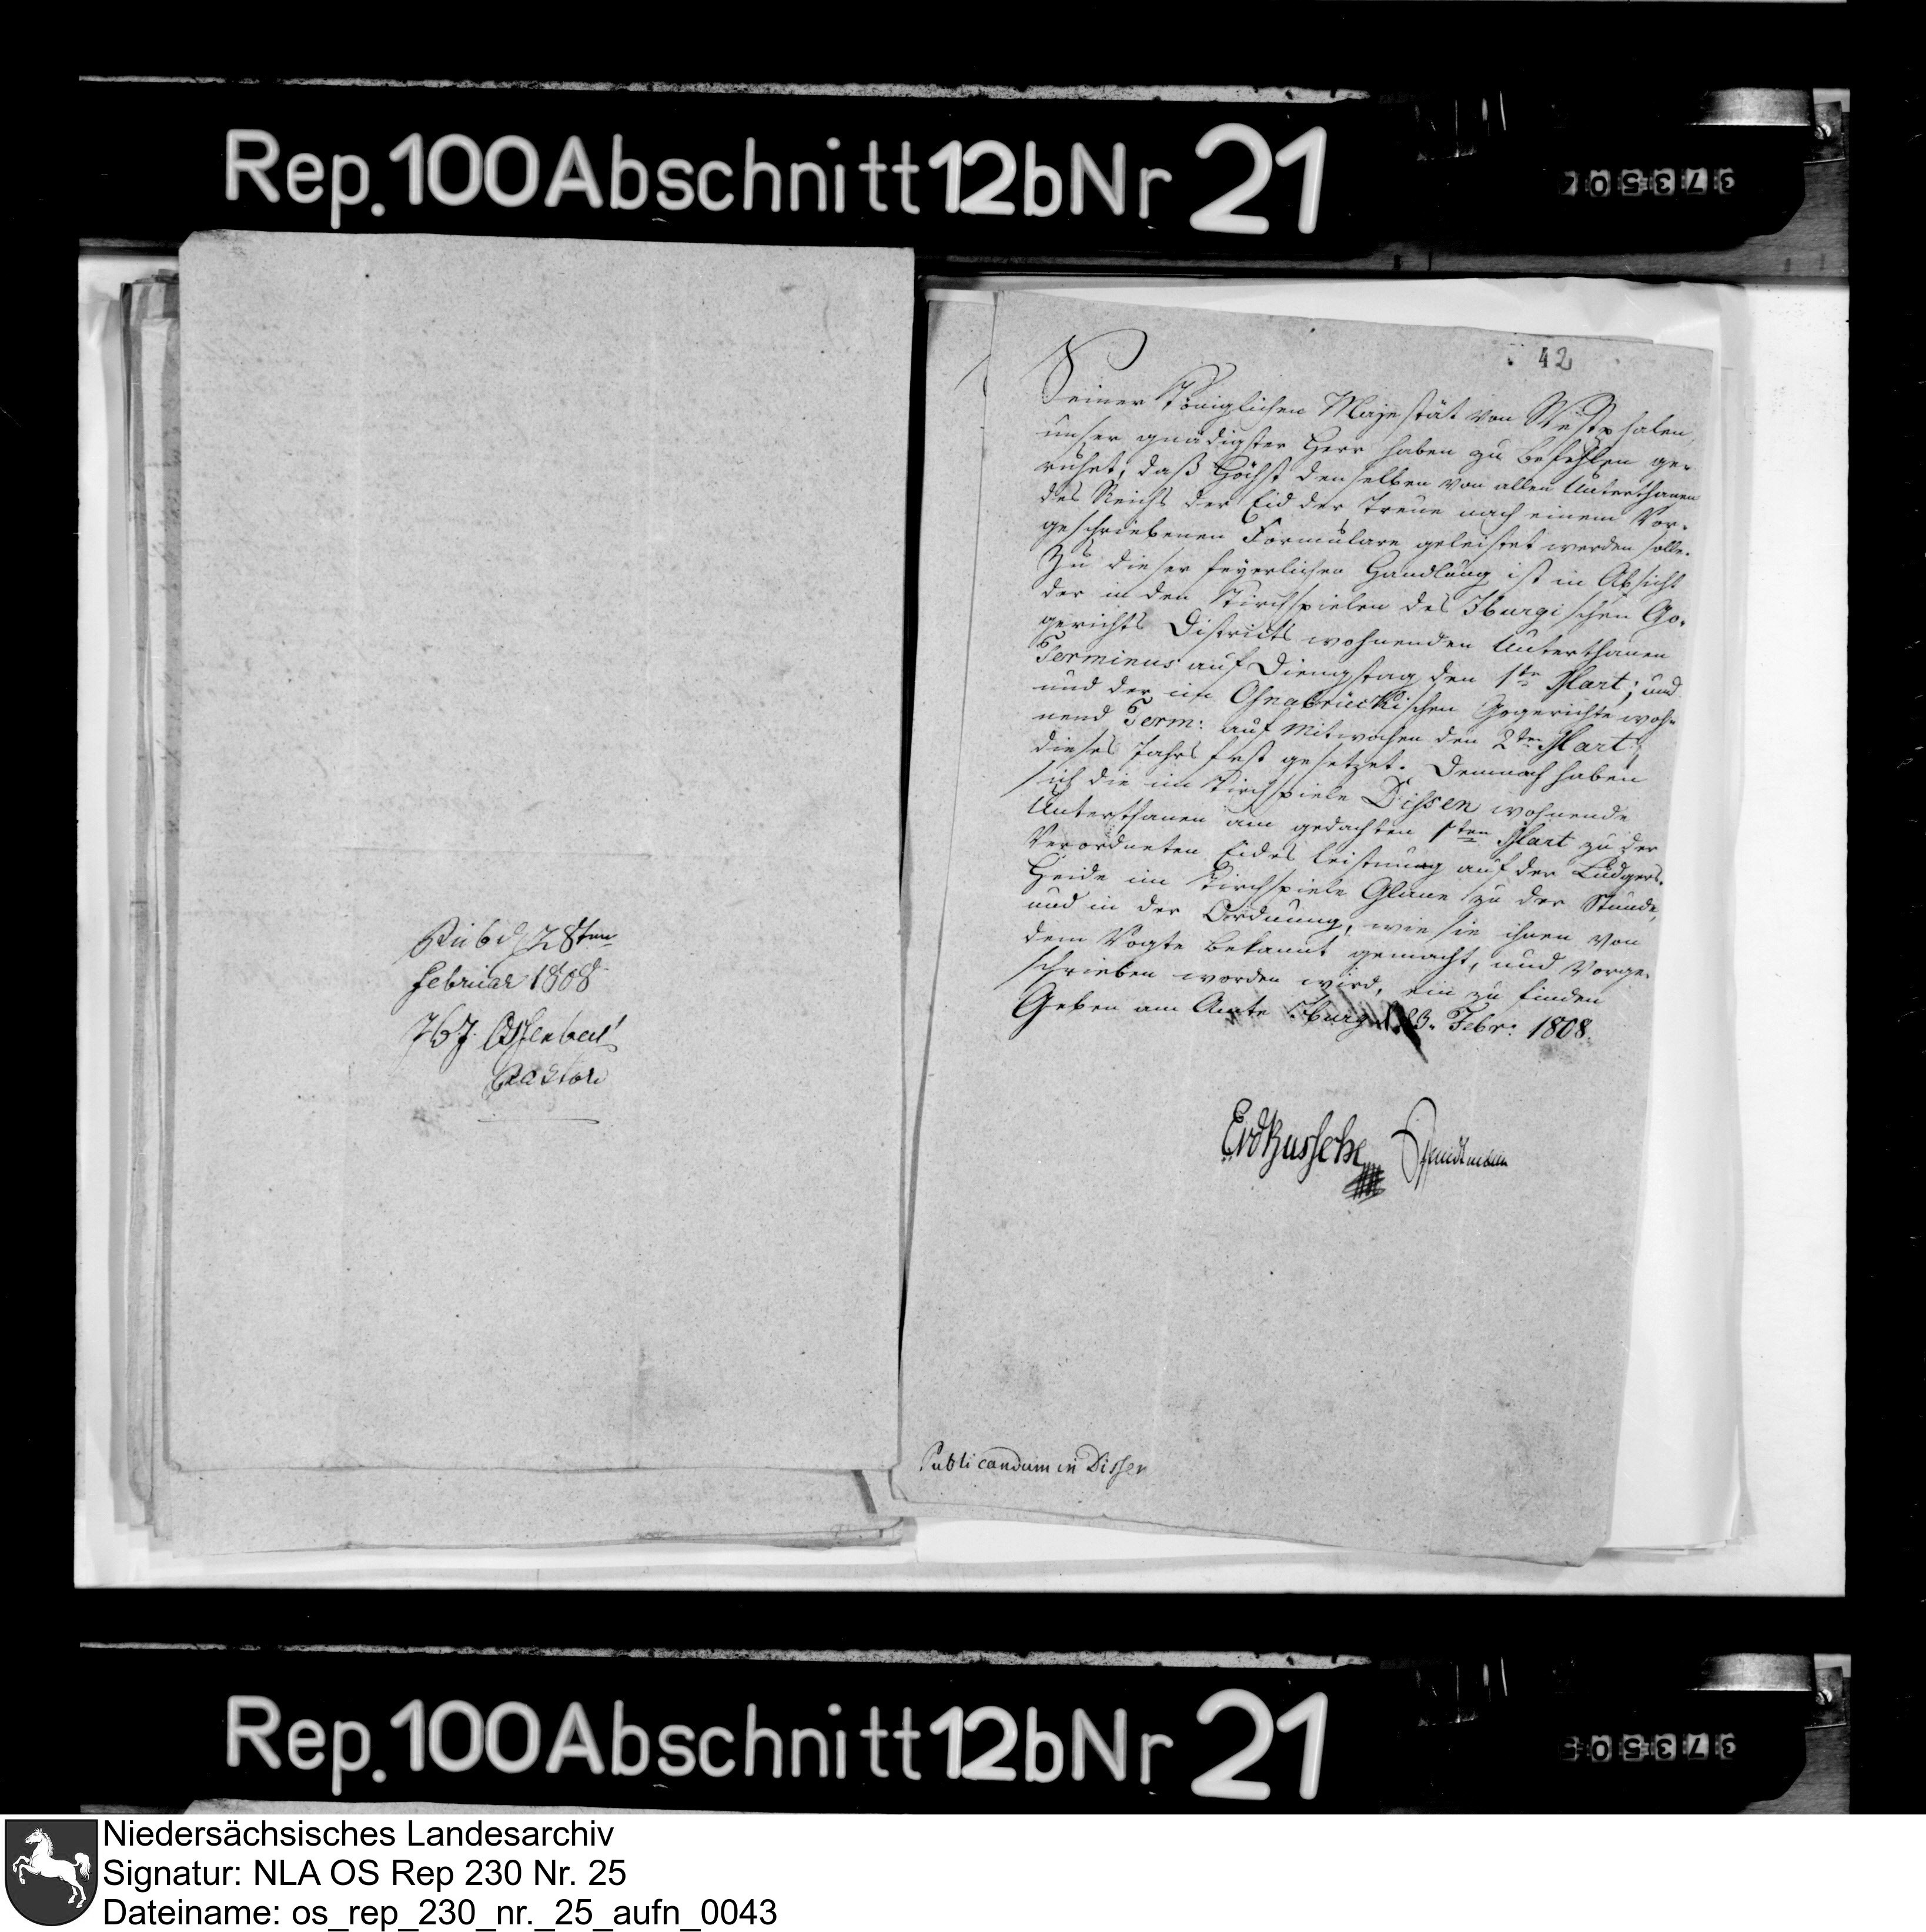 Rep. 100 Abschnitt 12b Nr 21
Publ d 28ten
Februar 1808
Pastor
42
Seiner Königlichen Majestät von Westphalen,
unser gnädigster Herr haben zu befehlen ge-
ruhet, daß Höchst denselben von allen Unterthanen
des Reichs der Eid der Treue nach einem Vor-
geschriebenen Formulare geleistet werden solle.
Zu dieser feyerlichen Handlung ist in Absicht
der in den Kirchspielen des Iburgischen Go-
gerichts Districts wohnenden Unterthanen
Terminus auf Diengstag den 1te Mart; und
und der im Osnabrückischen Gogerichte woh-
nend Term: auf Mitwochen den 2ten Mart;
dieses Jahrs fest gesetzet. Demnach haben
sich die im Kirchspiele Dissen wohnende
Unterthanen am gedachten 1ten Mart zu der
Verordneten Eides leistung auf der Lüdgers-
Heide im Kirchspiele Glane zu der Stunde,
und in der Ordnung, wie sie ihnen von
dem Vogte bekannt gemacht, und Vorge-
schrieben worden wird, ein zu finden
Geben am Amte Iburg d. 23. Febr: 1808.
EvdBussche
Publicandum in Dissen
Rep. 100 Abschnitt 12b Nr 21
Niedersächsisches Landesarchiv
Signatur: NLA OS Rep 230 Nr. 25
Dateiname: os_rep_230_nr._25_aufn_0043